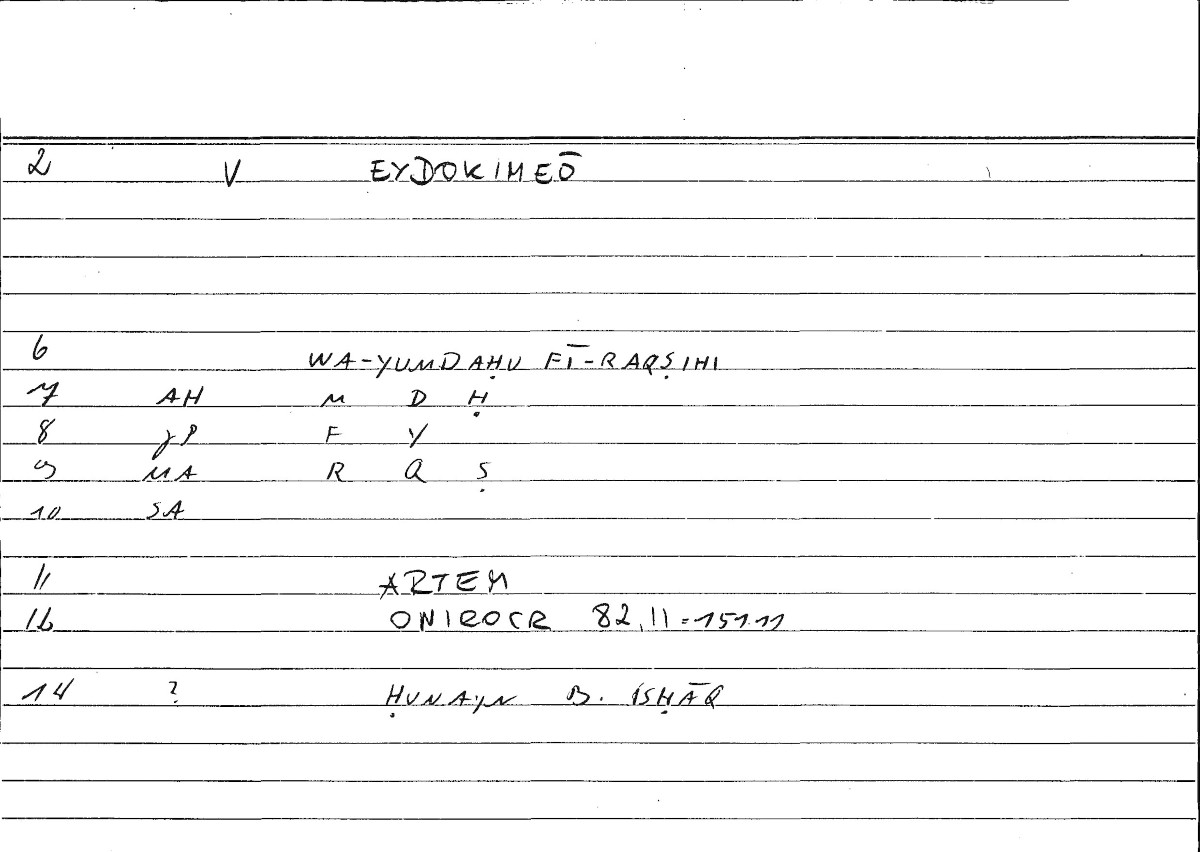 2 V EYDOKIMEŌ
6 WA-YUMDAḤU FĪ-RAQṢIHI
7 AH M D Ḥ
8 JP F Y
9 MA R Q Ṣ
10 SA
11 ARTEM
12 ONIROCR 82,11=151.11
14 ? ḤUNAYN B. ISḤĀQ